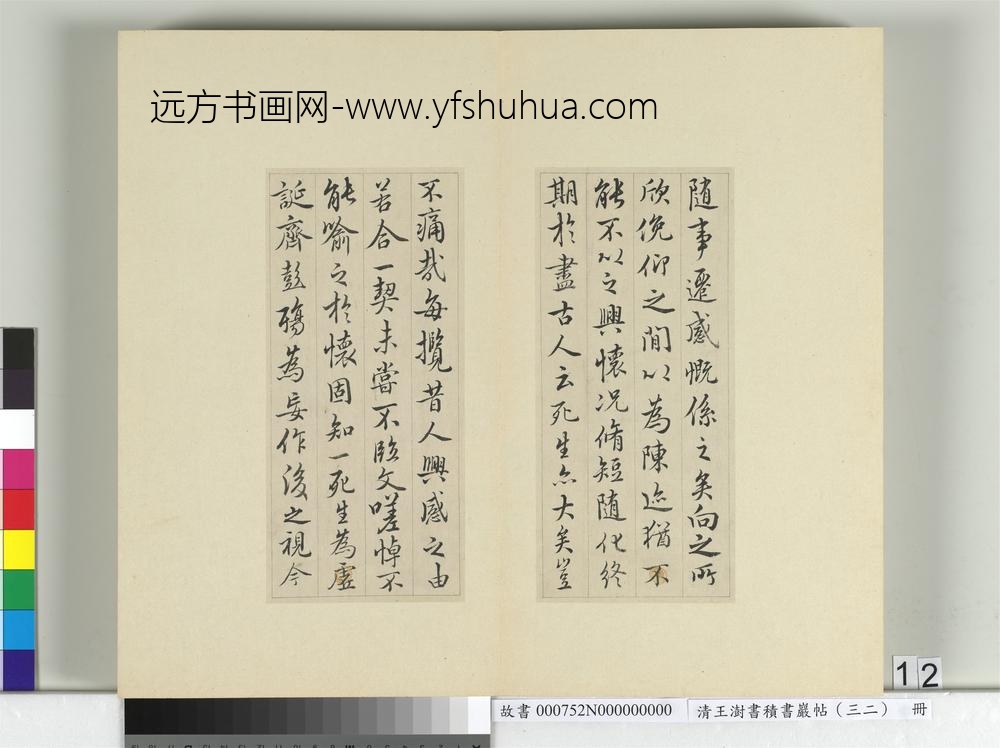 远方书画网-www.yfshuhua.com
随事遷感慨係之矣向之所
欣俛仰之間以為陳迹猶不
能不以之興懷況脩短随化終
期於盡古人云死生亦大矣豈
不痛哉每攬昔人興感之由
若合一契未嘗不臨文嗟悼不
能喻之於懷固知一死生為虛
誕齊彭殤為妄作後之視今
12
故書 000752N000000000
清王澍書積書巖帖（三二） 冊